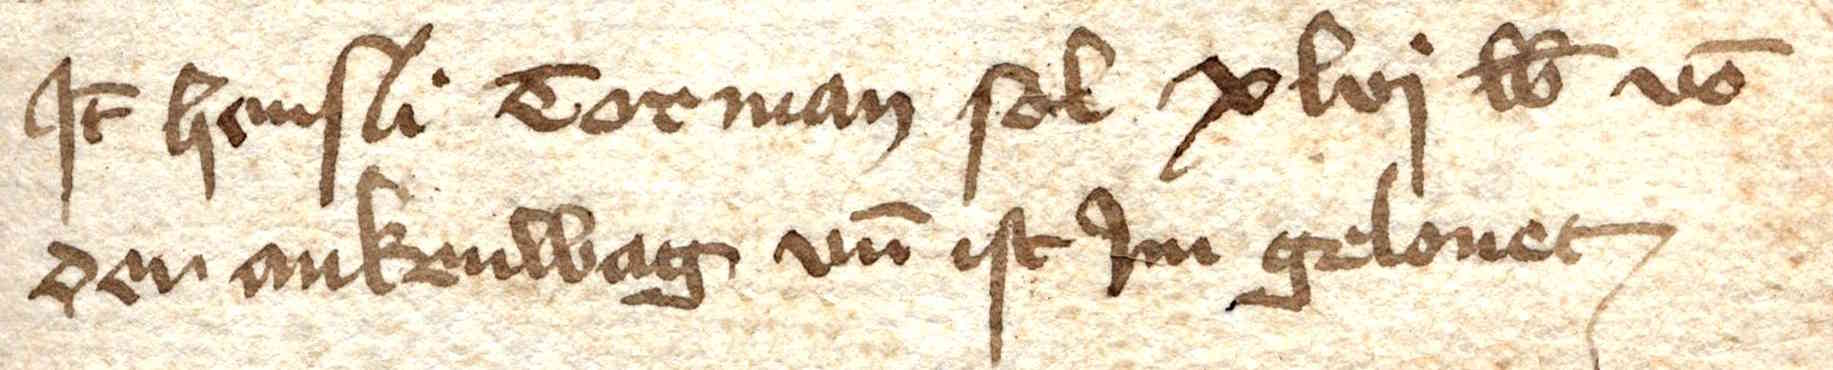 It̄ hensli Torman sol xlvj lb̄ vō
den ankenwag vn̄ ist Jm gelonet